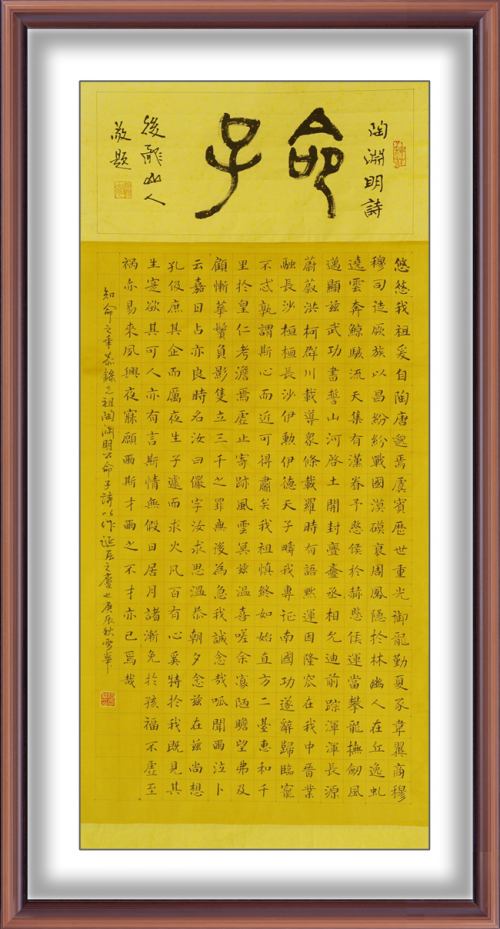 陶淵明詩
命子
後龍山人
敬題
悠悠我祖爰自陶唐邈焉虞賓歷世重光御龍勤夏豕韋翼商穆
穆司徒厥族以昌紛紛戰國漠漠衰周鳳隱於林幽人在丘逸虬
遶雲奔鯨駭流天集有漢眷予愍侯於赫愍侯運當攀龍撫劍風
邁顯茲武功書誓山河啓土開封亹亹丞相允迪前踪渾渾長源
蔚蔚洪柯群川載導衆條載羅時有語默運因隆窊在我中晉業
融長沙桓桓長沙伊勳伊德天子疇我專征南國功遂辭歸臨寵
不忒孰謂斯心而近可得肅矣我祖慎終如始直方二臺惠和千
里於皇仁考澹焉虛止寄跡風雲冥茲溫喜嗟余寡陋瞻望弗及
顧慚華鬢負影隻立三千之罪無後為急我誠念哉呱聞爾泣卜
云嘉日占亦良時名汝曰儼字汝求思溫恭朝夕念茲在茲尚想
孔伋庶其企而厲夜生子遽而求火凡百有心奚特於我既見其
生寔欲其可人亦有言斯情無假日居月諸漸免於孩福不虛至
禍亦易來夙興夜寐願爾斯才爾之不才亦已焉哉
知命之年恭錄先祖陶淵明公命子詩以作誕辰之慶也庚辰秋雪華